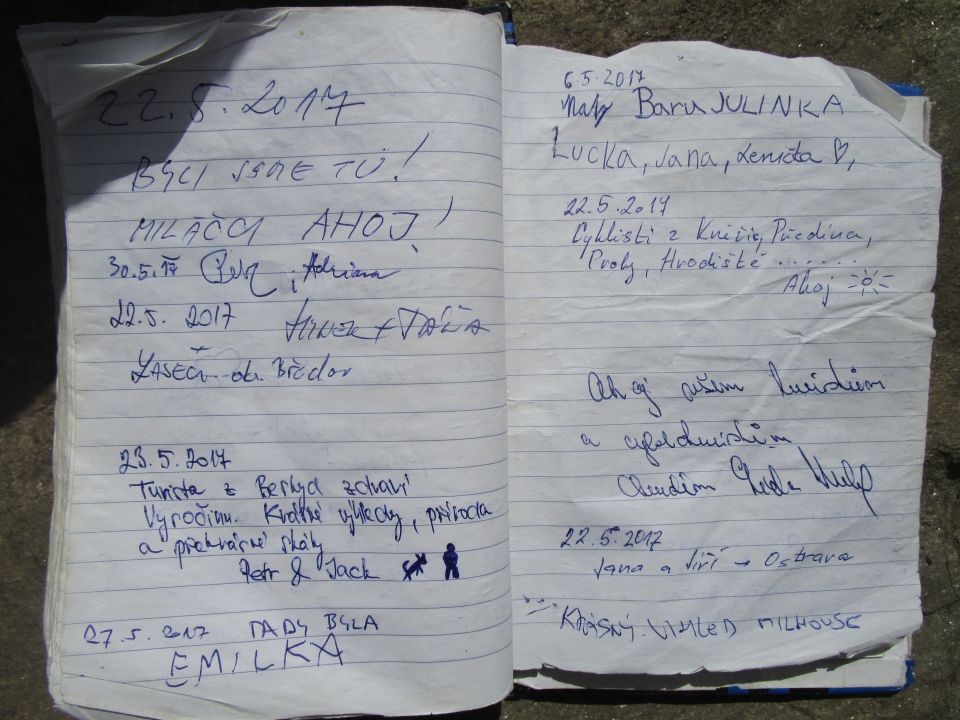 22.5.2017
BYLI JSME TU!
MILÁČCI AHOJ!
30.5.17 Petr, Adriana
22.5. 2017 HYNEK + TÁŇA
23.5.2017
Turista z Beskyd zdraví
Výročinu. Krásné výhledy, příroda
a překrásné skály
Petr & Jack
27.5.2017 TADY BYLA
EMILKA
6.5.2017
Naty Baru JULINKA
Lucka, Jana, Lenička ♡,
22.5.2017
Cyklisti z
Hrodiště .......
Ahoj
Ahoj všem turistům
a cykloturistům
Chrudim
22.5.2017
Jana a Jiří → Ostrava
KRÁSNÝ VÝHLED MILHOUSE